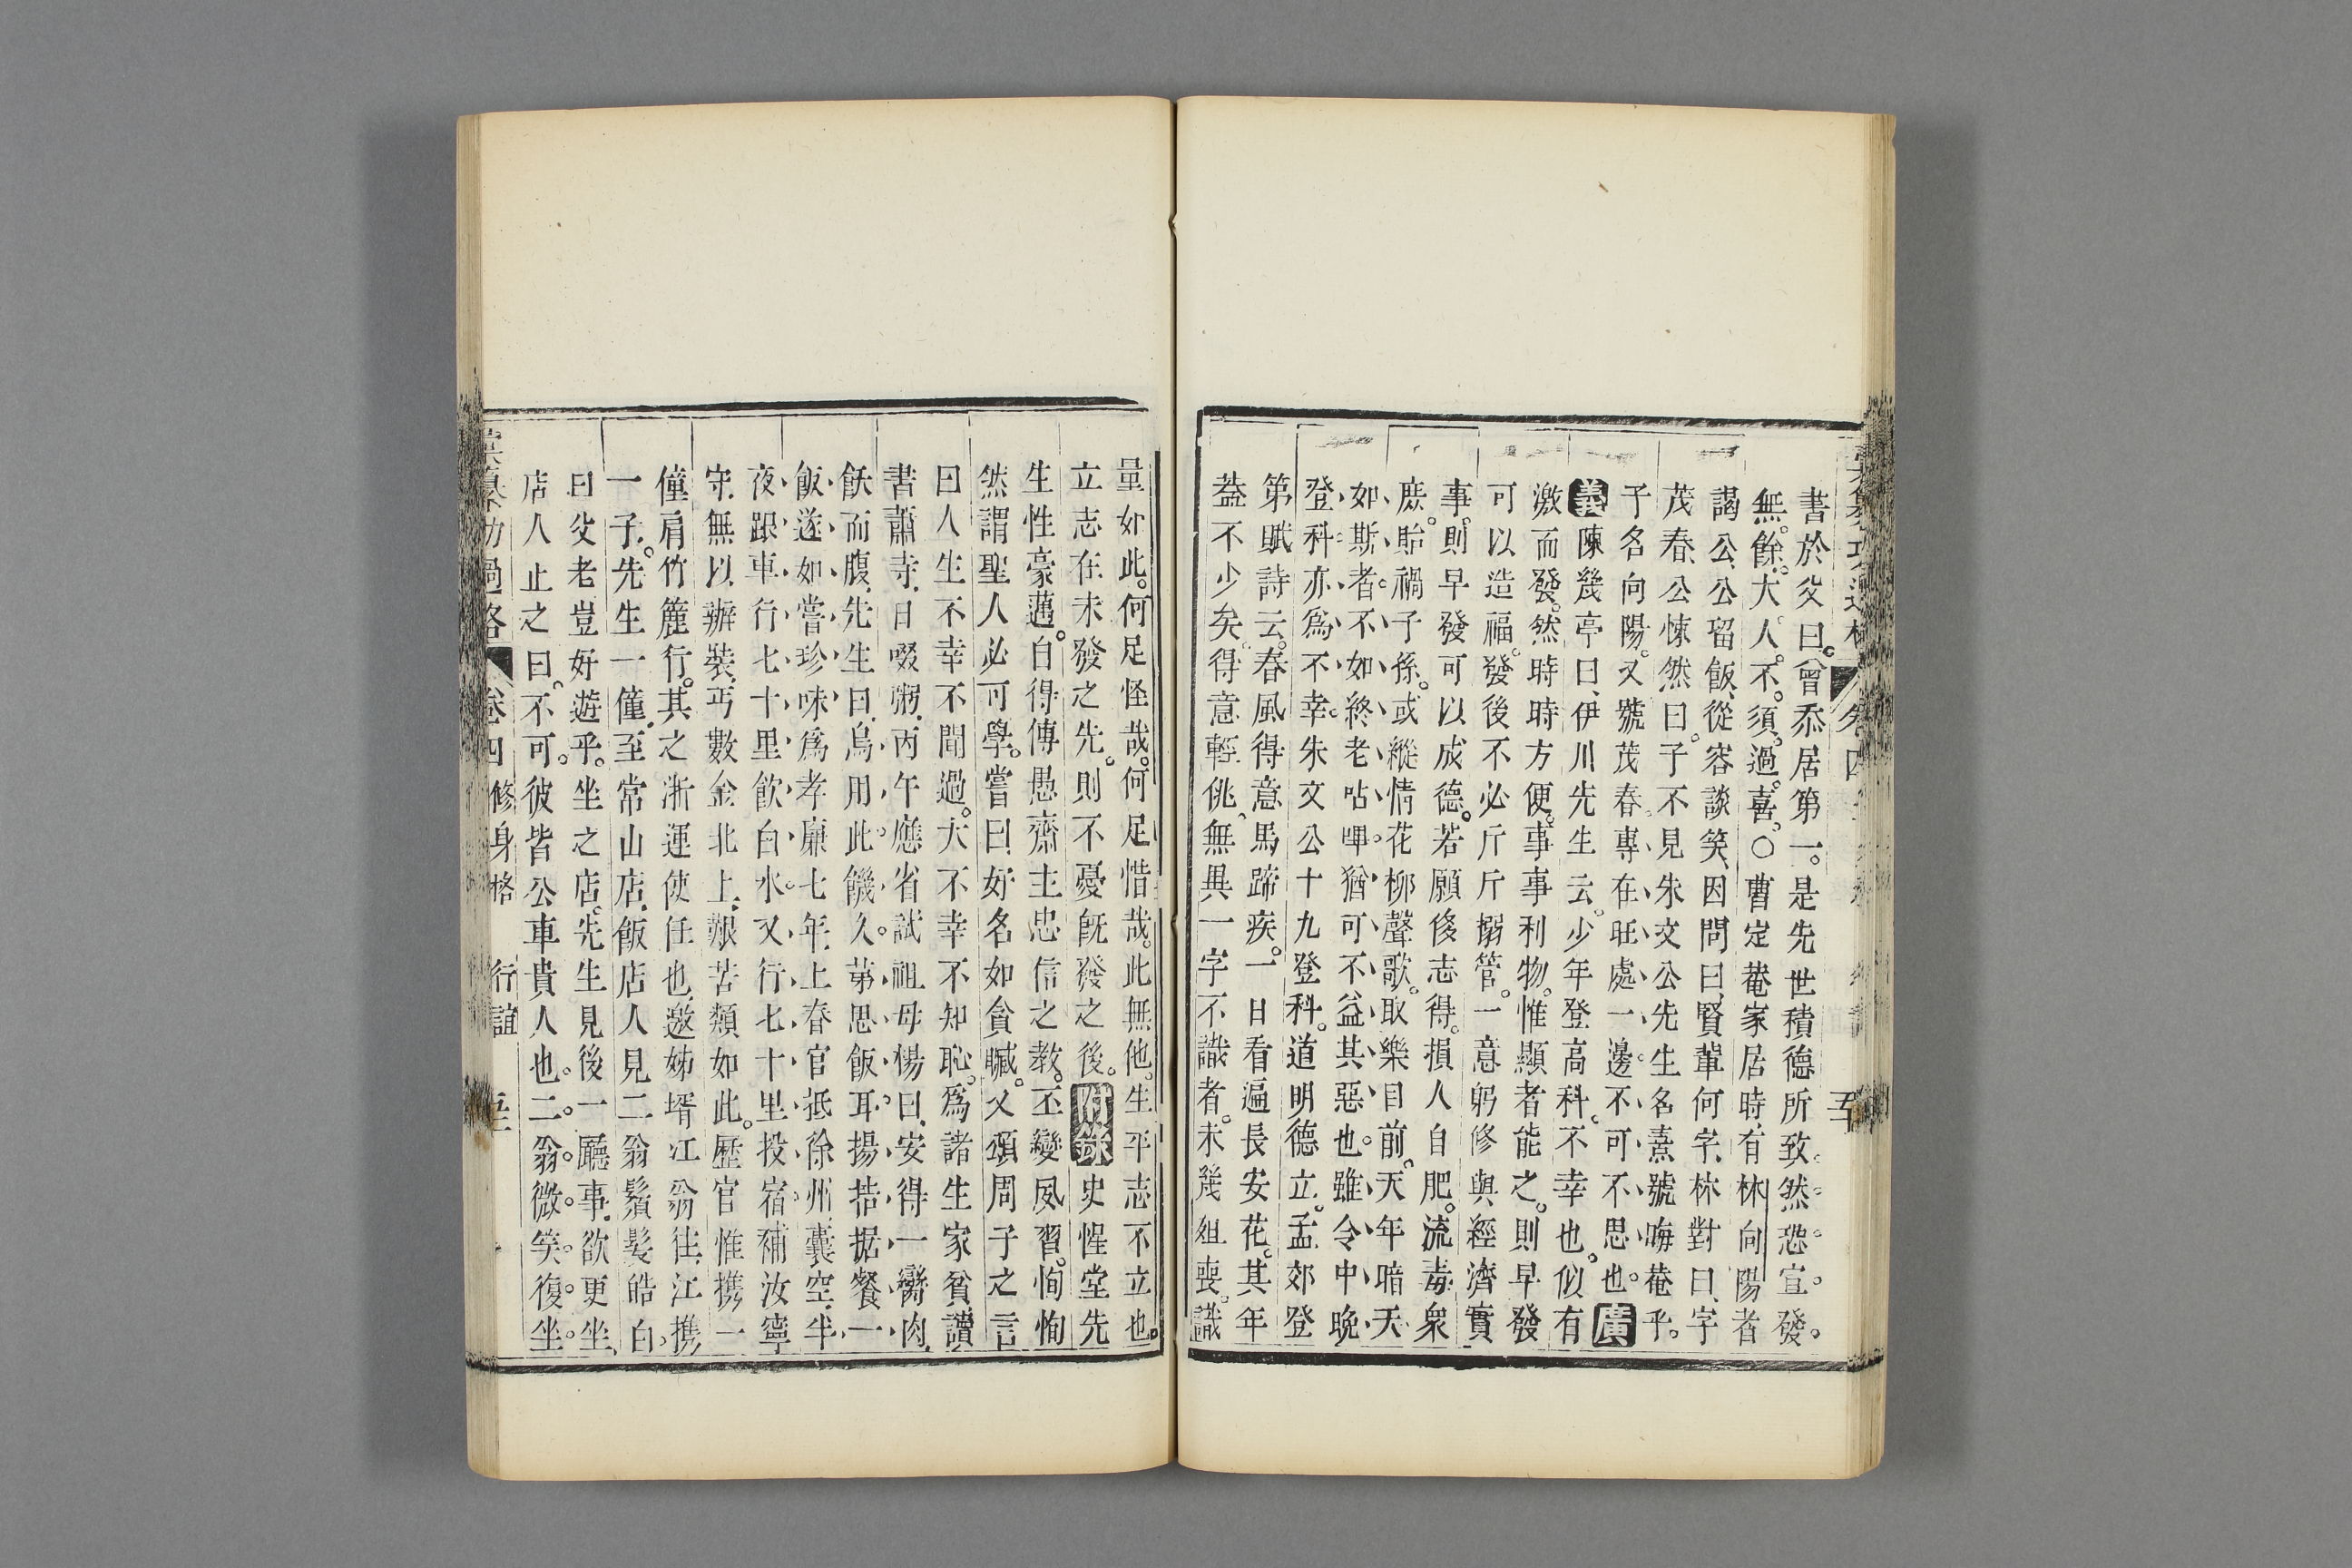 書於父曰曾忝居第一是先世積德所致然恐宣發
無餘大人不須過喜〇曹定菴家居時有林向陽者
謁公公留飯從容談笑因問曰賢輩何字林對曰字
茂春公悚然曰子不見朱文公先生名熹號晦菴乎
予名向陽又號茂春專在旺處一邊不可不思也廣
義陳幾亭曰伊川先生云少年登高科不幸也似有
激而發然時時方便事事利物惟顯者能之則早發
可以造福發後不必斤斤搦管一意躬修與經濟實
事則早發可以成德若願後志得損人自肥流毒衆
庶貽禍子孫或縱情花柳聲歌取樂目前天年暗夭
如斯者不如終老呫嗶猶可不益其惡也雖令中晚
登科亦爲不幸朱文公十九登科道明德立孟郊登
第賦詩云春風得意馬蹄疾一日看遍長安花其年
葢不少矣得意輕佻無異一字不識者未幾俎喪識
量如此何足怪哉何足惜哉此無他生平志不立也
立志在未發之先則不憂旣發之後附錄史惺堂先
生性豪邁自得傅愚齋主忠信之教丕變夙習恂恂
然謂聖人必可學嘗曰好名如貪贓又頌周子之言
曰人生不幸不聞過大不幸不知恥爲諸生家貧讀
書蕭寺日啜粥丙午應省試祖母楊曰安得一臠肉
飫而腹先生曰烏用此饑久第思飯耳揚拮据餐一
飯遂如嘗珍味爲孝廉七年上春官抵徐州囊空半
夜跟車行七十里飲白水又行七十里投宿補汝寧
守無以辦裝丐數金北上艱苦類如此歷官惟携一
僮肩竹簏行其之浙運使任也邀姊壻江翁往江携
一子先生一僮至常山店飯店人見二翁鬚髮皓白
曰父老豈好遊乎坐之店先生見後一廳事欲更坐
店人止之曰不可彼皆公車貴人也二翁微笑復坐
彙纂功過格 卷四 修身格 行誼